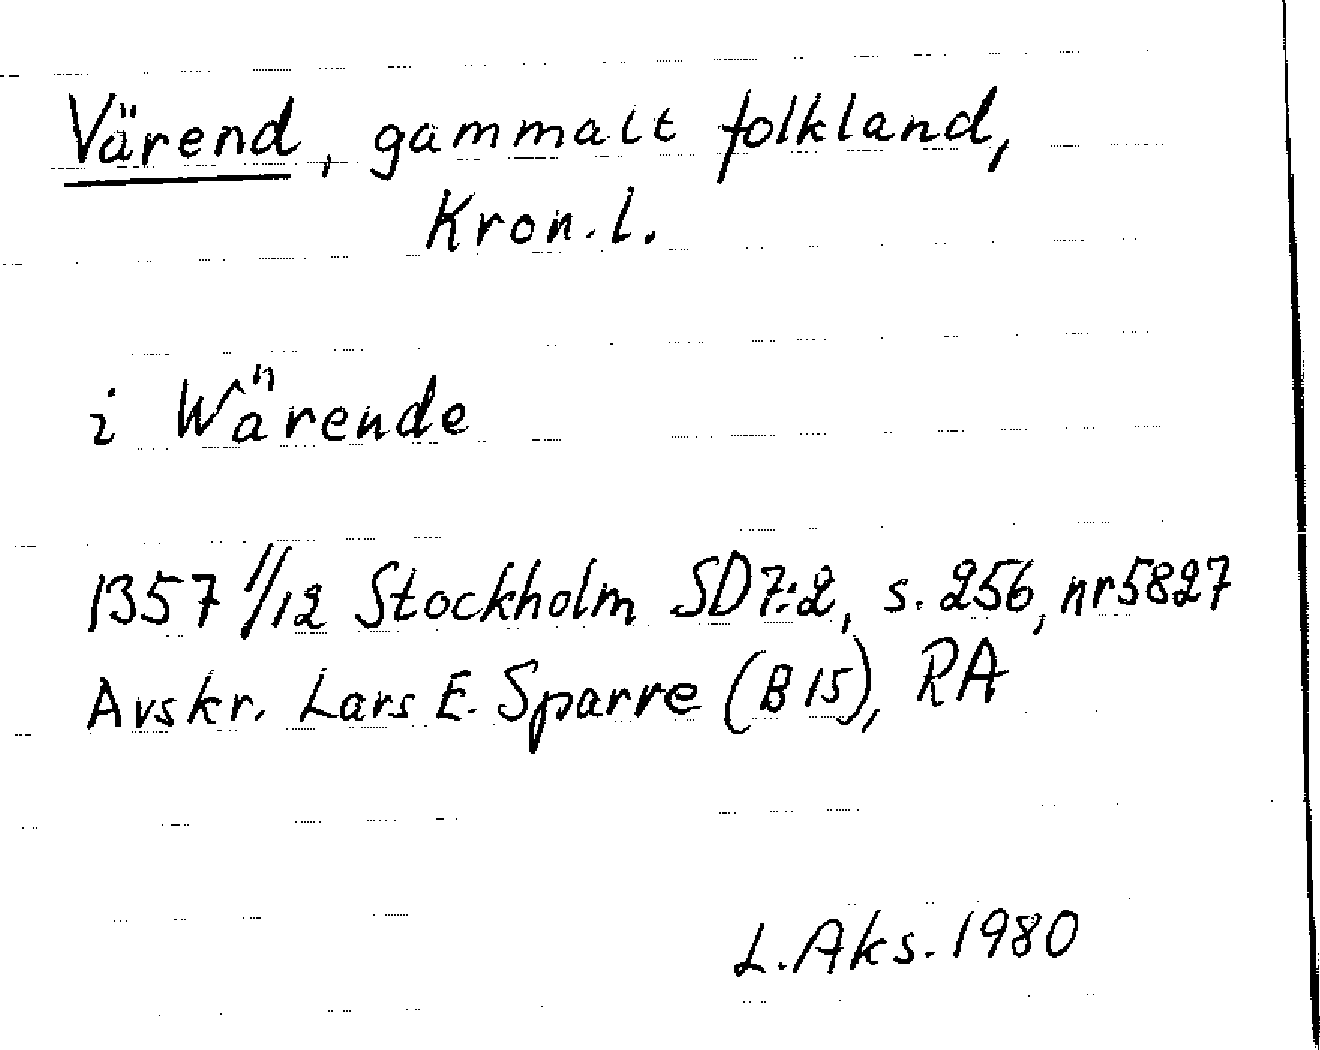 Värend, gammalt folkland,
Kron.l.
i Wärende
1357 1/12 Stockholm SD7:2, s. 256, nr 5827
Avskr. Lars E. Sparre (B 15), RA
L. Aks. 1980